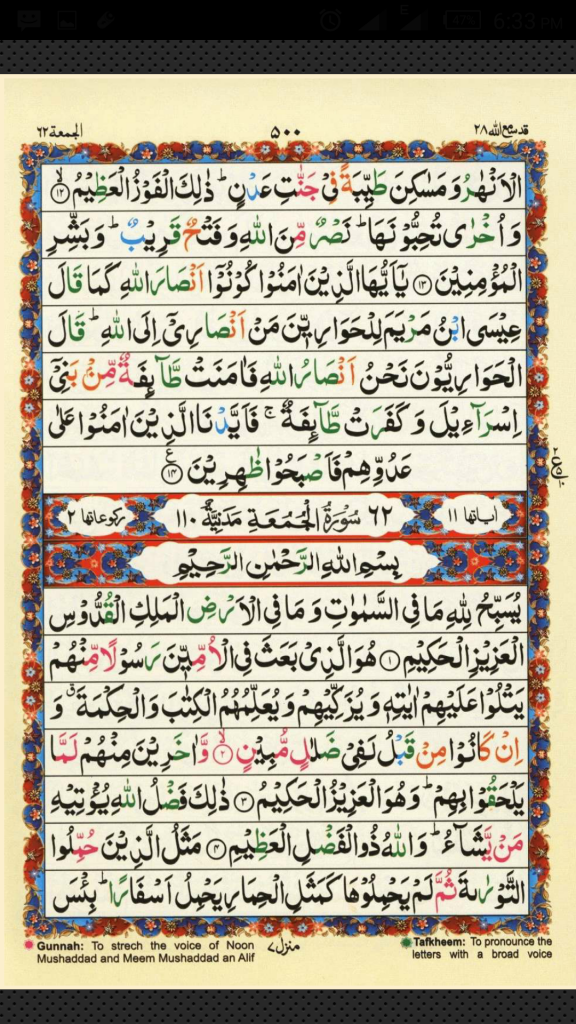 E 47% 6:33 PM
قد سمع الله ٢٨ ٥٠٠ الجمعة ٦٢
الْاَنْهٰرُ وَ مَسٰكِنَ طَيِّبَةً فِيْ جَنّٰتِ عَدْنٍ ؕ ذٰلِكَ الْفَوْزُ الْعَظِيْمُ ۙ﴿۱۲﴾
وَ اُخْرٰى تُحِبُّوْنَهَا ؕ نَصْرٌ مِّنَ اللّٰهِ وَ فَتْحٌ قَرِيْبٌ ؕ وَ بَشِّرِ
الْمُؤْمِنِيْنَ ﴿۱۳﴾ يٰۤاَيُّهَا الَّذِيْنَ اٰمَنُوْا كُوْنُوْۤا اَنْصَارَ اللّٰهِ كَمَا قَالَ
عِيْسَى ابْنُ مَرْيَمَ لِلْحَوَارِيّٖنَ مَنْ اَنْصَارِيْۤ اِلَى اللّٰهِ ؕ قَالَ
الْحَوَارِيُّوْنَ نَحْنُ اَنْصَارُ اللّٰهِ فَاٰمَنَتْ طَّآىِٕفَةٌ مِّنْۢ بَنِيْۤ
اِسْرَآءِيْلَ وَ كَفَرَتْ طَّآىِٕفَةٌ ۚ فَاَيَّدْنَا الَّذِيْنَ اٰمَنُوْا عَلٰى
عَدُوِّهِمْ فَاَصْبَحُوْا ظٰهِرِيْنَ ﴿۱۴﴾ ع
اٰياتها ١١ ٦٢ سُوْرَةُ الْجُمُعَةِ مَدَنِيَّةٌ ١١٠ ركوعاتها ٢
بِسْمِ اللّٰهِ الرَّحْمٰنِ الرَّحِيْمِ
يُسَبِّحُ لِلّٰهِ مَا فِي السَّمٰوٰتِ وَ مَا فِي الْاَرْضِ الْمَلِكِ الْقُدُّوْسِ
الْعَزِيْزِ الْحَكِيْمِ ﴿۱﴾ هُوَ الَّذِيْ بَعَثَ فِي الْاُمِّيّٖنَ رَسُوْلًا مِّنْهُمْ
يَتْلُوْا عَلَيْهِمْ اٰيٰتِهٖ وَ يُزَكِّيْهِمْ وَ يُعَلِّمُهُمُ الْكِتٰبَ وَ الْحِكْمَةَ ۗ وَ
اِنْ كَانُوْا مِنْ قَبْلُ لَفِيْ ضَلٰلٍ مُّبِيْنٍ ۙ﴿۲﴾ وَّ اٰخَرِيْنَ مِنْهُمْ لَمَّا
يَلْحَقُوْا بِهِمْ ؕ وَ هُوَ الْعَزِيْزُ الْحَكِيْمُ ﴿۳﴾ ذٰلِكَ فَضْلُ اللّٰهِ يُؤْتِيْهِ
مَنْ يَّشَآءُ ؕ وَ اللّٰهُ ذُو الْفَضْلِ الْعَظِيْمِ ﴿۴﴾ مَثَلُ الَّذِيْنَ حُمِّلُوا
التَّوْرٰىةَ ثُمَّ لَمْ يَحْمِلُوْهَا كَمَثَلِ الْحِمَارِ يَحْمِلُ اَسْفَارًا ؕ بِئْسَ
Gunnah: To strech the voice of Noon
Mushaddad and Meem Mushaddad an Alif
منزل ٧
Tafkheem: To pronounce the
letters with a broad voice